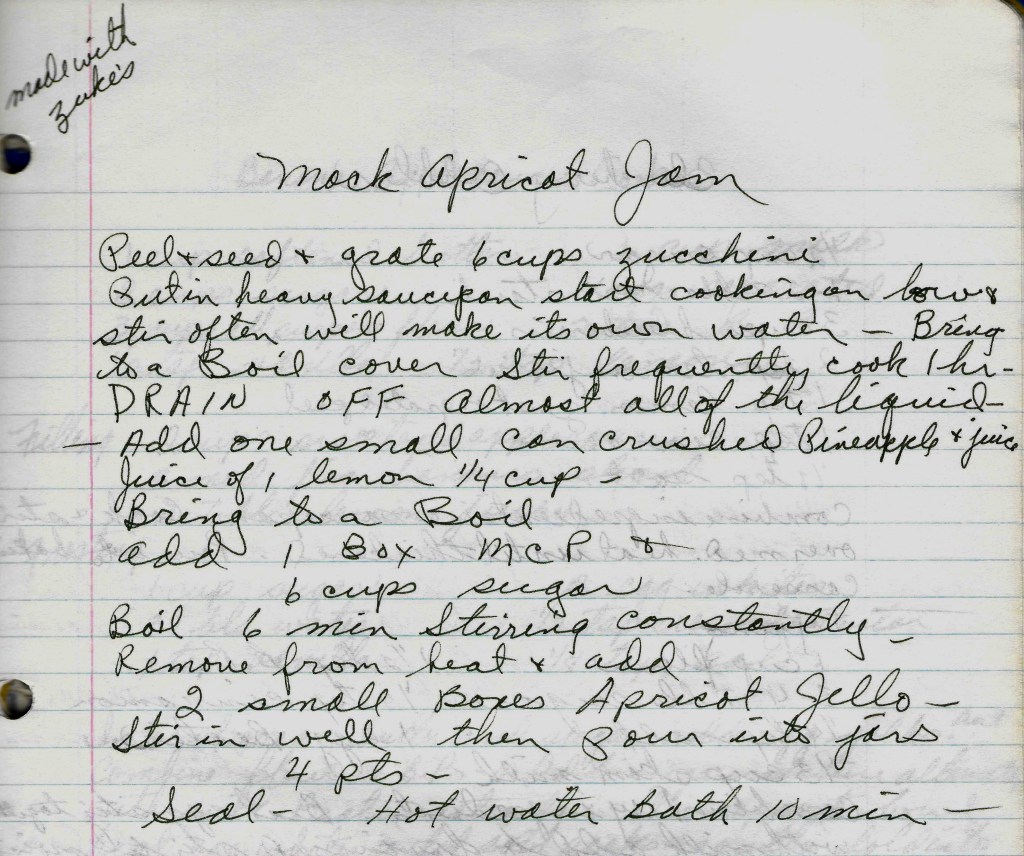 made with
zuke's
Mock Apricot Jam
Peel & seed & grate 6 cups zucchini
Put in heavy saucepan start cooking on low &
stir often will make its own water — Bring
to a Boil cover Stir frequently cook 1 hr-
DRAIN OFF Almost all of the liquid-
— Add one small can crushed Pineapple & juice
Juice of 1 lemon 1/4 cup -
Bring to a Boil
add 1 Box MCP &
6 cups sugar
Boil 6 min Stirring constantly -
Remove from heat & add
2 small Boxes Apricot Jello -
Stir in well then pour into jars
4 pts -
Seal - Hot water Bath 10 min —